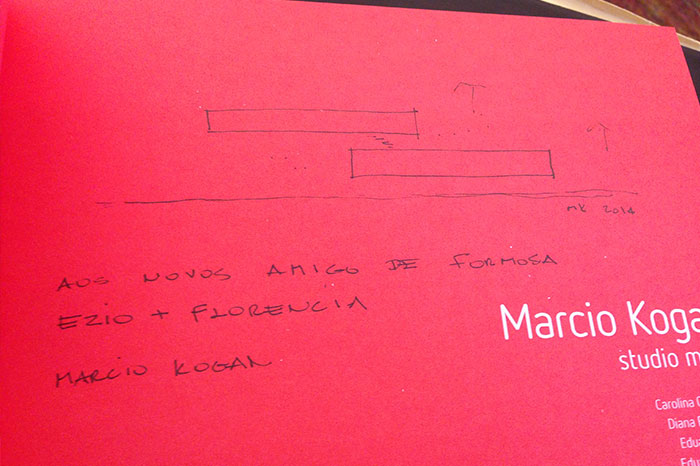 MK 2014
AOS NOVOS AMIGO DE FORMOSA
EZIO + FLORENCIA
MARCIO KOGAN
Marcio Koga
studio m
Carolina C
Diana
Edua
Edua